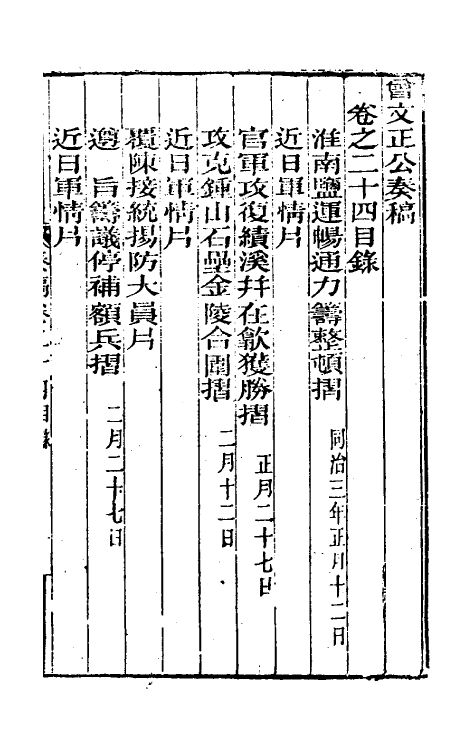 曾文正公奏稿
卷之二十四目錄
淮南鹽運暢通力籌整頓摺 同治三年正月十二日
近日軍情片
官軍攻復績溪幷在歙獲勝摺 正月二十七日
攻克鍾山石壘金陵合圍摺 二月十二日
近日軍情片
覆陳接統揚防大員片
遵 旨籌議停補額兵摺 二月二十七日
近日軍情片